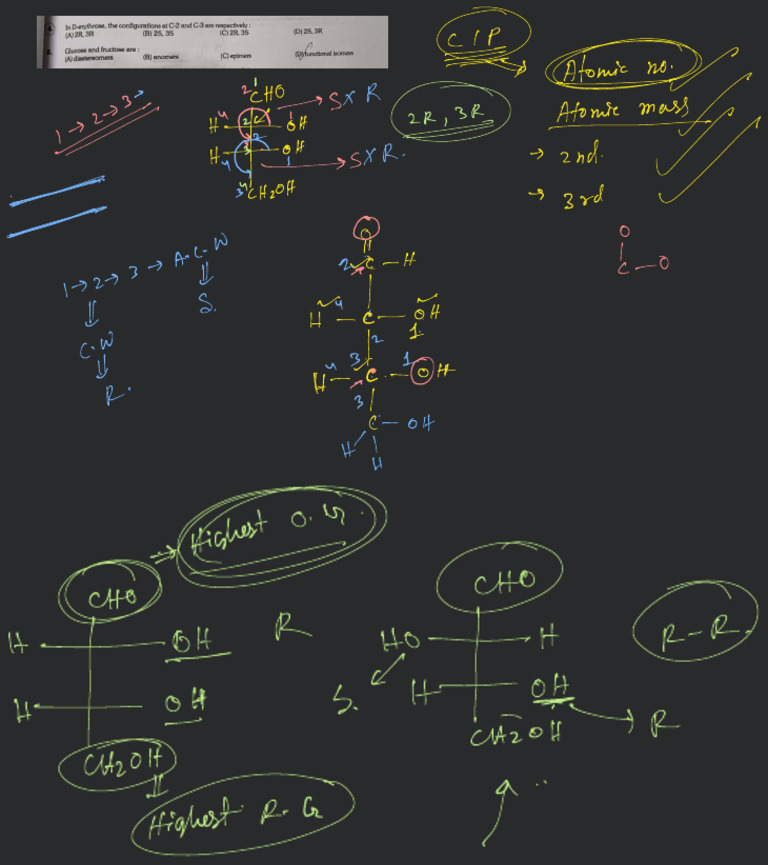 In D-erythrose, the configurations at C-2 and C-3 are respectively :
(A) 2R, 3R (B) 2S, 3S (C) 2R, 3S (D) 2S, 3R
Glucose and fructose are :
(A) diastereomers (B) anomers (C) epimers (D) functional isomers
CIP
Atomic no.
Atomic mass
→ 2nd.
→ 3rd
1 → 2 → 3 →
2 1 CHO → S x R
4 H 2 1 OH
2
H 3 OH → S x R.
4 1
3 4 CH2OH
2R, 3R
1 → 2 → 3 → A.C.W
⇓
S.
⇓
C.W
⇓
R.
O
2 C — H
H 4 — C — OH
1
2
3
H 4 — C — 1 OH
3
C — OH
H H
O
C — O
Highest O. G.
CHO
H OH R
H OH
CH2OH
Highest R. G
CHO
HO H
S.
H OH → R
CH2OH
R – R.